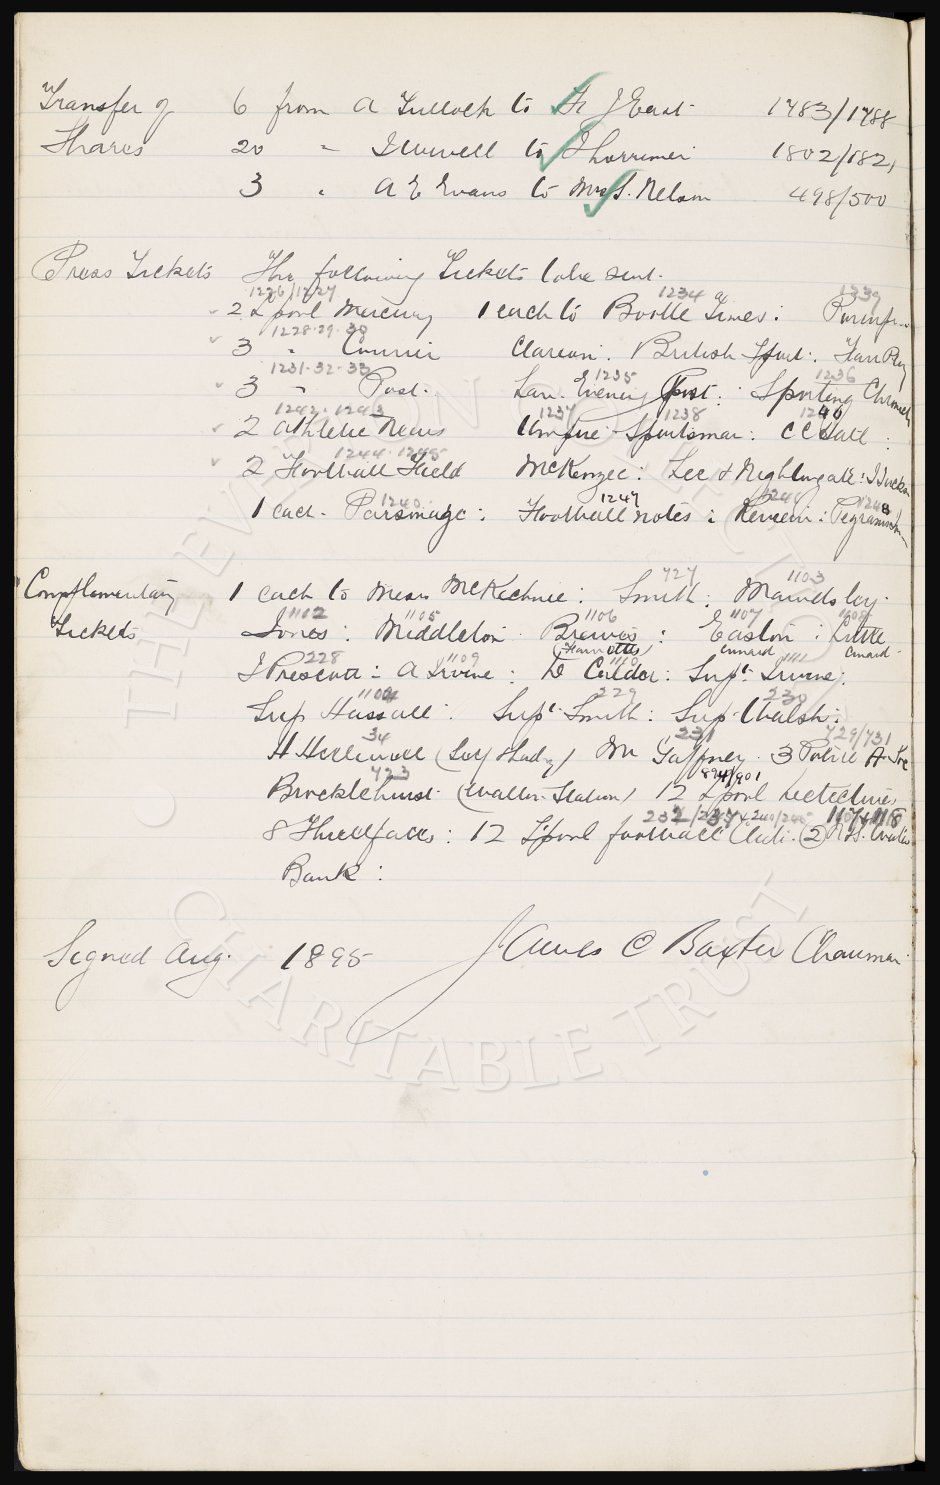 Transfer of 6 from A Tulloch to Dr J East 1483/1488
Shares 20 " I Wewell to J Lorrimer 1802/1821
3 " A E Evans to Mrs S. Nelson 498/500
Press Tickets The following Tickets to be sent.
1226/1227 1234 1239
2 L'pool Mercury 1 each to Bootle Times:
1228.29.30
3 " Courier Clarion. British Sport:
1231.32.33 1235 1236
3 " Post. Lan. Evening Post: Sporting Chronicle
1242. 1243 1237 1238 1246
2 Athletic News Umpire Sportsman: C C Hall.
1244. 1245
2 Football Field McKenzie: Lee & Nightingale:
1240 1247 1248
1 each Parsonage: Football notes: Review:
727 1103
Complimentary 1 each to Messrs McKechnie: Smith: Mawdsley.
1102 1105 1106 1107 1108
Tickets Jones: Middleton. Brewis: Easton: Little
(Harriotts) cunard cunard
228 1109 1110 1111
J Prescott: A Irvine: Dr Calder: Supt. Irvine:
1104 229 230
Sup Hassall: Supt. Smith: Sup. Walsh:
34 231 729/731
(Self & Lady) Mr Gaffney. 3 Police A
723 894/901
Brocklehurst (Walton Station) 12 L'pool detectives
232/237 & 240/245 1117 & 1118
8 Threlfalls: 12 L'pool football Club. 2
Bank:
Signed Aug. 1895 James C Baxter Chairman
O THE EVERTON COLLECTION
CHARITABLE TRUST